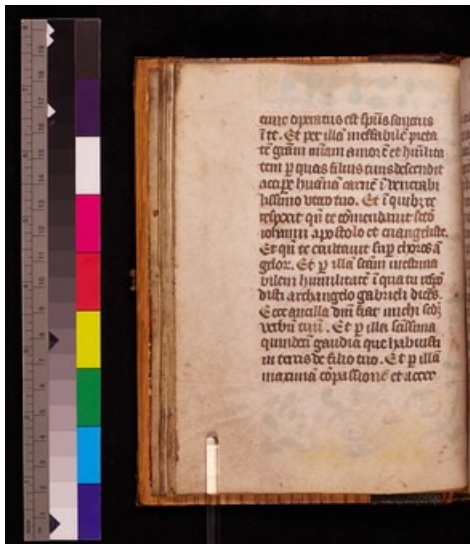 cūic operatus est sp̄us sanctus
ī te. Et per illā ineffabilē pieta
tē gr̄am m̄iam amorē et hūilita
tem p̱ quas filius tuus descendit
accip̄e humanā carnē ī venerabi
lissimo utero tuo. Et ī quib; te
respexit qn̄ te cōmendauit sc̄o
iohanni apostolo et euangeliste.
Et qn̄ te exaltauit sup̄ choros ā
gelor. Et p̱ illā sc̄am inestima
bilem humilitatē ī qua tu respō
disti archangelo gabrieli dicēs.
Ecce ancilla dn̄i fiat michi sc̄d;
verbū tuū. Et p̱ illa sc̄issima
quindeci gaudia que habuisti
in terris de filio tuo. Et p̱ illā
maximā cōpassionē et acer